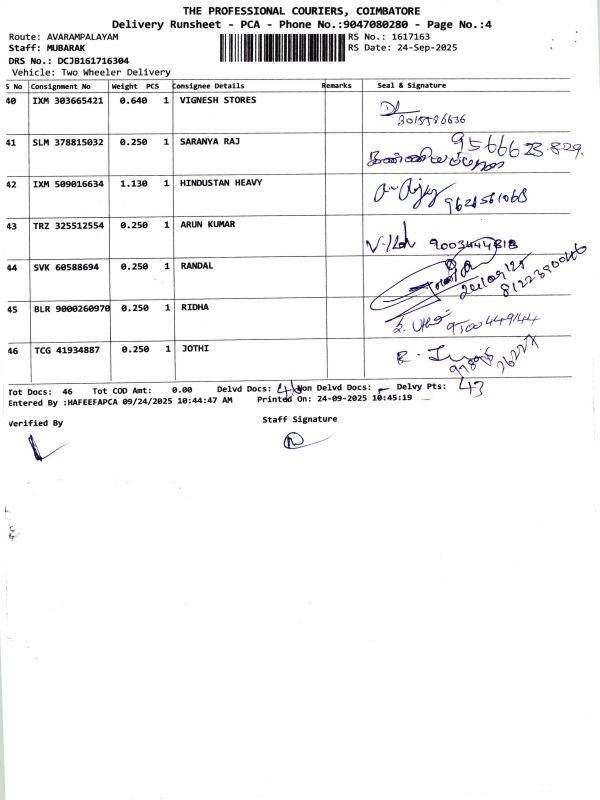 THE PROFESSIONAL COURIERS, COIMBATORE
Delivery Runsheet - PCA - Phone No.:9047080280 - Page No.:4
Route: AVARAMPALAYAM RS No.: 1617163
Staff: MUBARAK RS Date: 24-Sep-2025
DRS No.: DCJB161716304
Vehicle: Two Wheeler Delivery
S No Consignment No Weight PCS Consignee Details Remarks Seal & Signature
40 IXM 303665421 0.640 1 VIGNESH STORES
41 SLM 378815032 0.250 1 SARANYA RAJ 9566623829
42 IXM 509016634 1.130 1 HINDUSTAN HEAVY
43 TRZ 325512554 0.250 1 ARUN KUMAR 9003444818
44 SVK 60588694 0.250 1 RANDAL
45 BLR 9000260970 0.250 1 RIDHA 9500449144
46 TCG 41934887 0.250 1 JOTHI
Tot Docs: 46 Tot COD Amt: 0.00 Delvd Docs: 46 Non Delvd Docs: - Delvy Pts: 43
Entered By :HAFEEFAPCA 09/24/2025 10:44:47 AM Printed On: 24-09-2025 10:45:19
Verified By Staff Signature